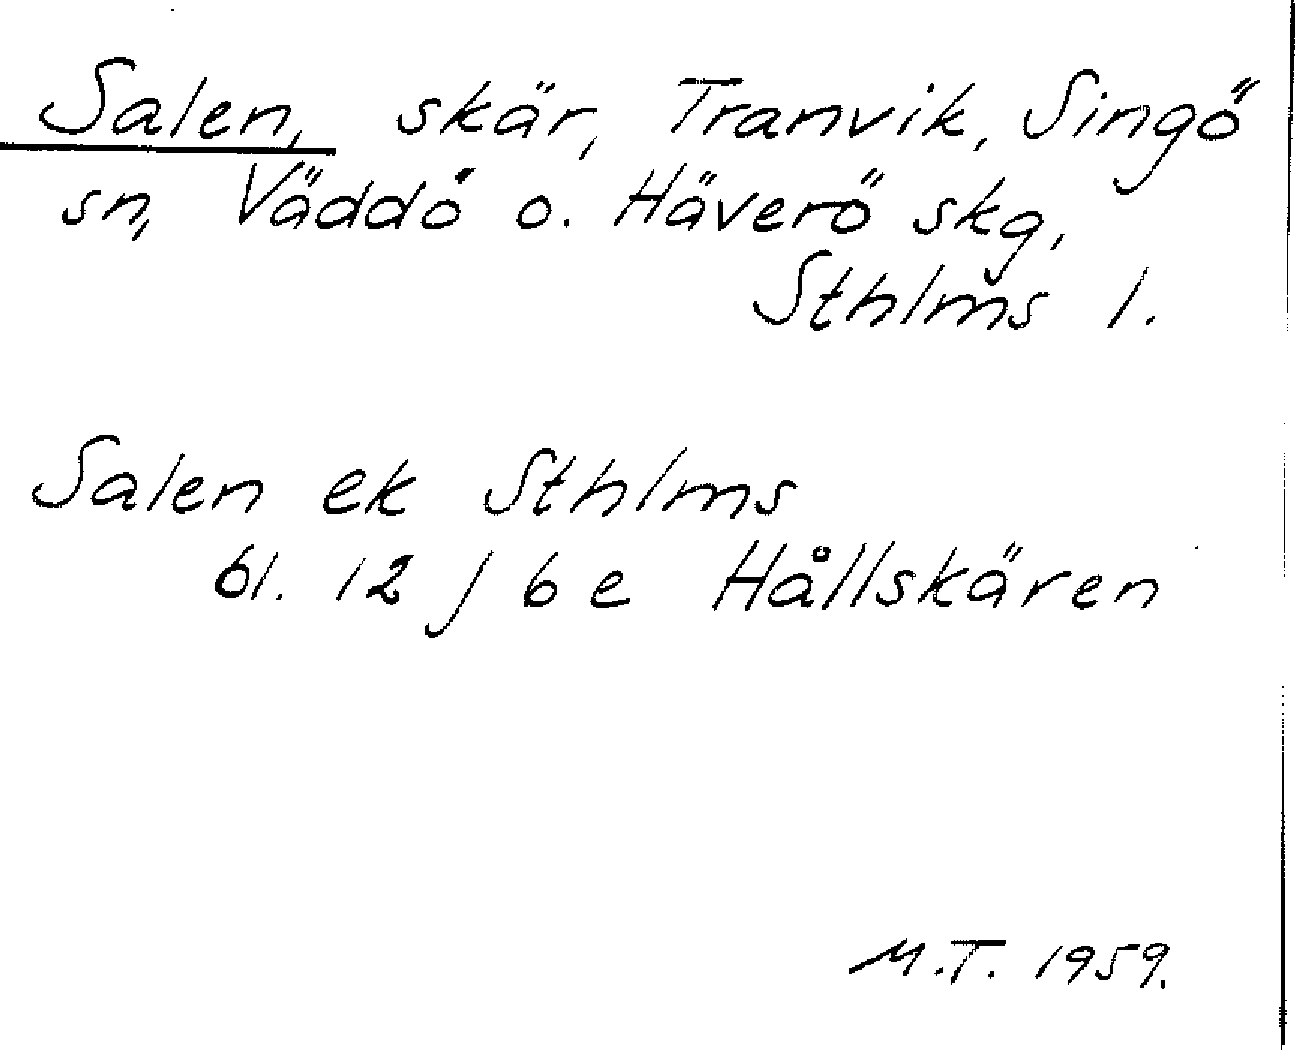 Salen, skär, Tranvik, Singö
sn, Väddö o. Häverö skg,
Sthlms l.
Salen ek Sthlms
bl. 12 j 6 e Hållskären
M.T. 1959.